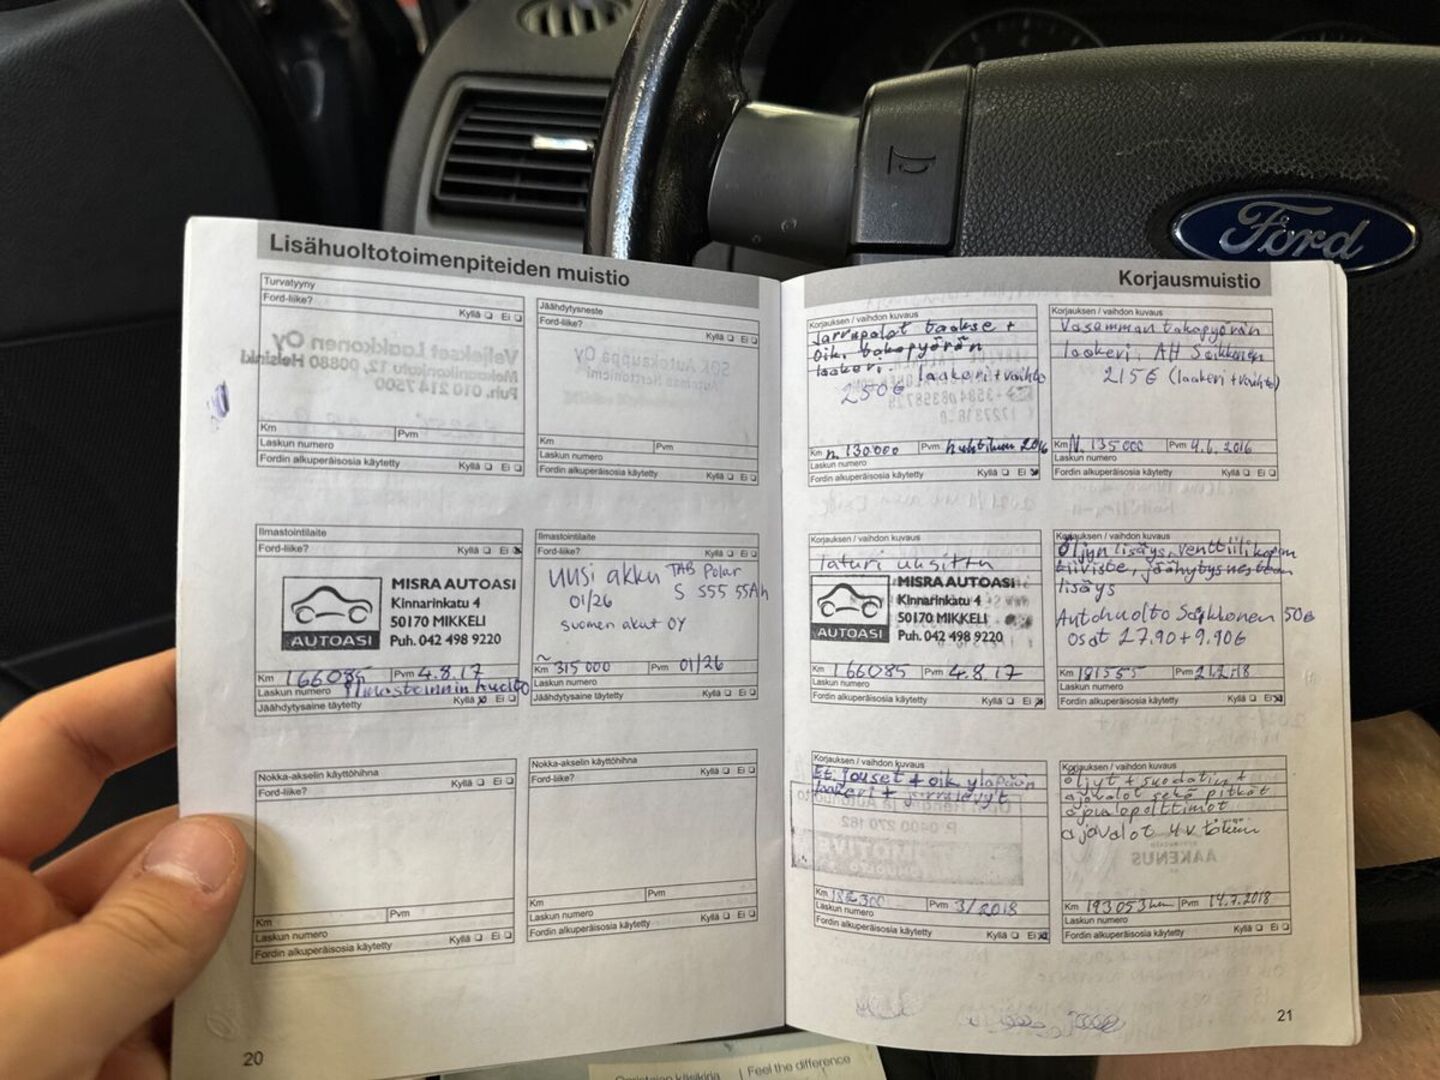 Ford
Lisähuoltotoimenpiteiden muistio
Turvatyyny
Ford-liike?
Kyllä Ei
Km Pvm
Laskun numero
Fordin alkuperäisosia käytetty Kyllä Ei
Jäähdytysneste
Ford-liike?
Kyllä Ei
Km Pvm
Laskun numero
Fordin alkuperäisosia käytetty Kyllä Ei
Ilmastointilaite
Ford-liike? Kyllä Ei
MISRA AUTOASI
Kinnarinkatu 4
50170 MIKKELI
Puh. 042 498 9220
AUTOASI
Km 166085 Pvm 4.8.17
Laskun numero Ilmastoinnin huolto
Jäähdytysaine täytetty Kyllä Ei
Ilmastointilaite
Ford-liike? Kyllä Ei
Uusi akku TAB Polar
01/26 S S55 55Ah
suomen akut OY
Km ~315 000 Pvm 01/26
Laskun numero
Jäähdytysaine täytetty Kyllä Ei
Nokka-akselin käyttöhihna
Ford-liike? Kyllä Ei
Km Pvm
Laskun numero
Fordin alkuperäisosia käytetty Kyllä Ei
Nokka-akselin käyttöhihna
Ford-liike? Kyllä Ei
Km Pvm
Laskun numero
Fordin alkuperäisosia käytetty Kyllä Ei
20
Korjausmuistio
Korjauksen / vaihdon kuvaus
Jarrupalat taakse +
Oik. takapyörän
laakeri. laakeri+vaihto
250€
Km n. 130000 Pvm huhtikuu 2016
Laskun numero
Fordin alkuperäisosia käytetty Kyllä Ei
Korjauksen / vaihdon kuvaus
Vasemman takapyörän
laakeri. AH Saikkonen
215€ (laakeri+vaihto)
Km N. 135000 Pvm 4.6.2016
Laskun numero
Fordin alkuperäisosia käytetty Kyllä Ei
Korjauksen / vaihdon kuvaus
laturi uusittu
MISRA AUTOASI
Kinnarinkatu 4
50170 MIKKELI
Puh. 042 498 9220
AUTOASI
Km 166085 Pvm 4.8.17
Laskun numero
Fordin alkuperäisosia käytetty Kyllä Ei
Korjauksen / vaihdon kuvaus
Öljyn lisäys, venttiilikopan
tiiviste, jäähytysnesteen
lisäys
Autohuolto Saikkonen 50€
osat 27.90+9.90€
Km 181555 Pvm
Laskun numero
Fordin alkuperäisosia käytetty Kyllä Ei
Korjauksen / vaihdon kuvaus
Et. jouset + oik. yläpään
laakeri + jarrulevyt
Km Pvm 3/2018
Laskun numero
Fordin alkuperäisosia käytetty Kyllä Ei
Korjauksen / vaihdon kuvaus
öljyt + suodatin +
ajovalot sekä pitkät
ajovalopolttimot
ajovalot
Km 193053km Pvm 14.7.2018
Laskun numero
Fordin alkuperäisosia käytetty Kyllä Ei
21
Feel the difference